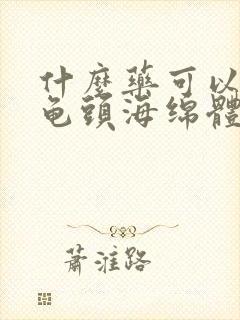 什麼藥可以
龟頭海绵體
蕭淮路